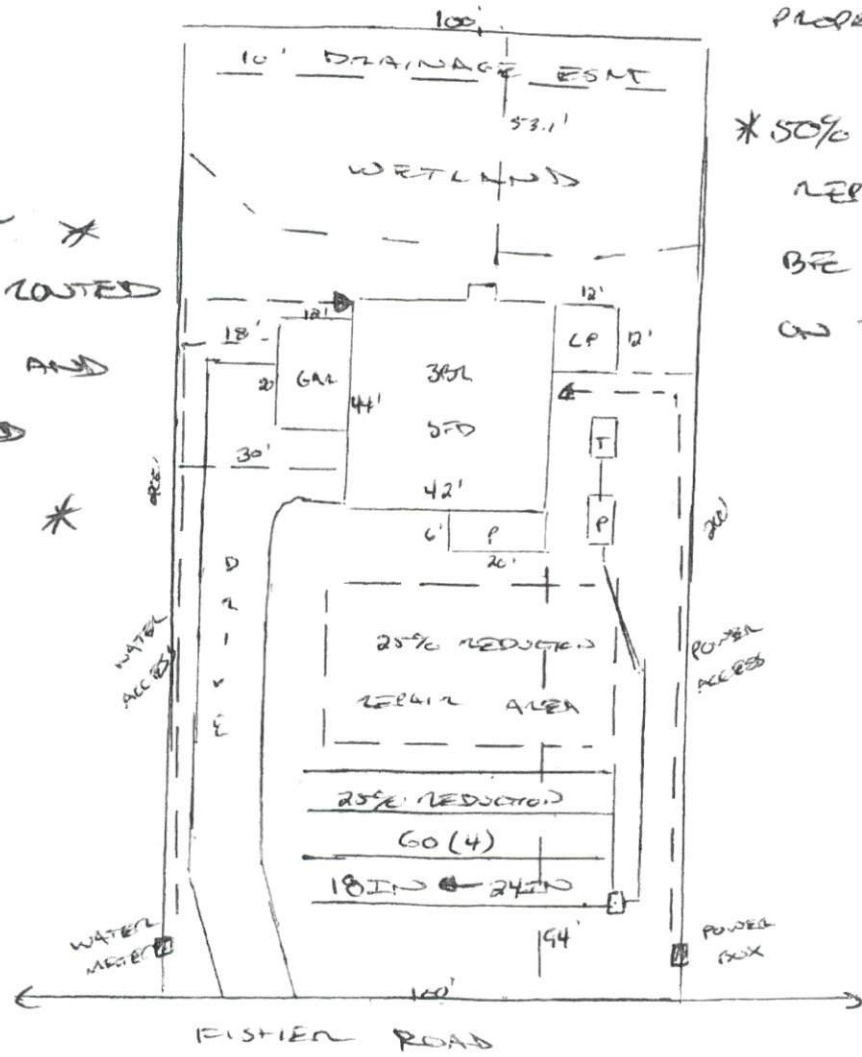 100'
10' DRAINAGE ESMT
53.1'
WETLAND
* 50%
*
ROUTED
AND
ON
12'
18'
18'
20
GAR
44'
3BR
SFD
LP
12'
T
P
30'
42'
6'
P
20'
*
200'
DRIVE
WATER
ACCESS
POWER
ACCESS
25% REDUCTION
REPAIR AREA
25% REDUCTION
60 (4)
18IN 24IN
WATER
METER
94'
POWER
BOX
100'
FISHER ROAD